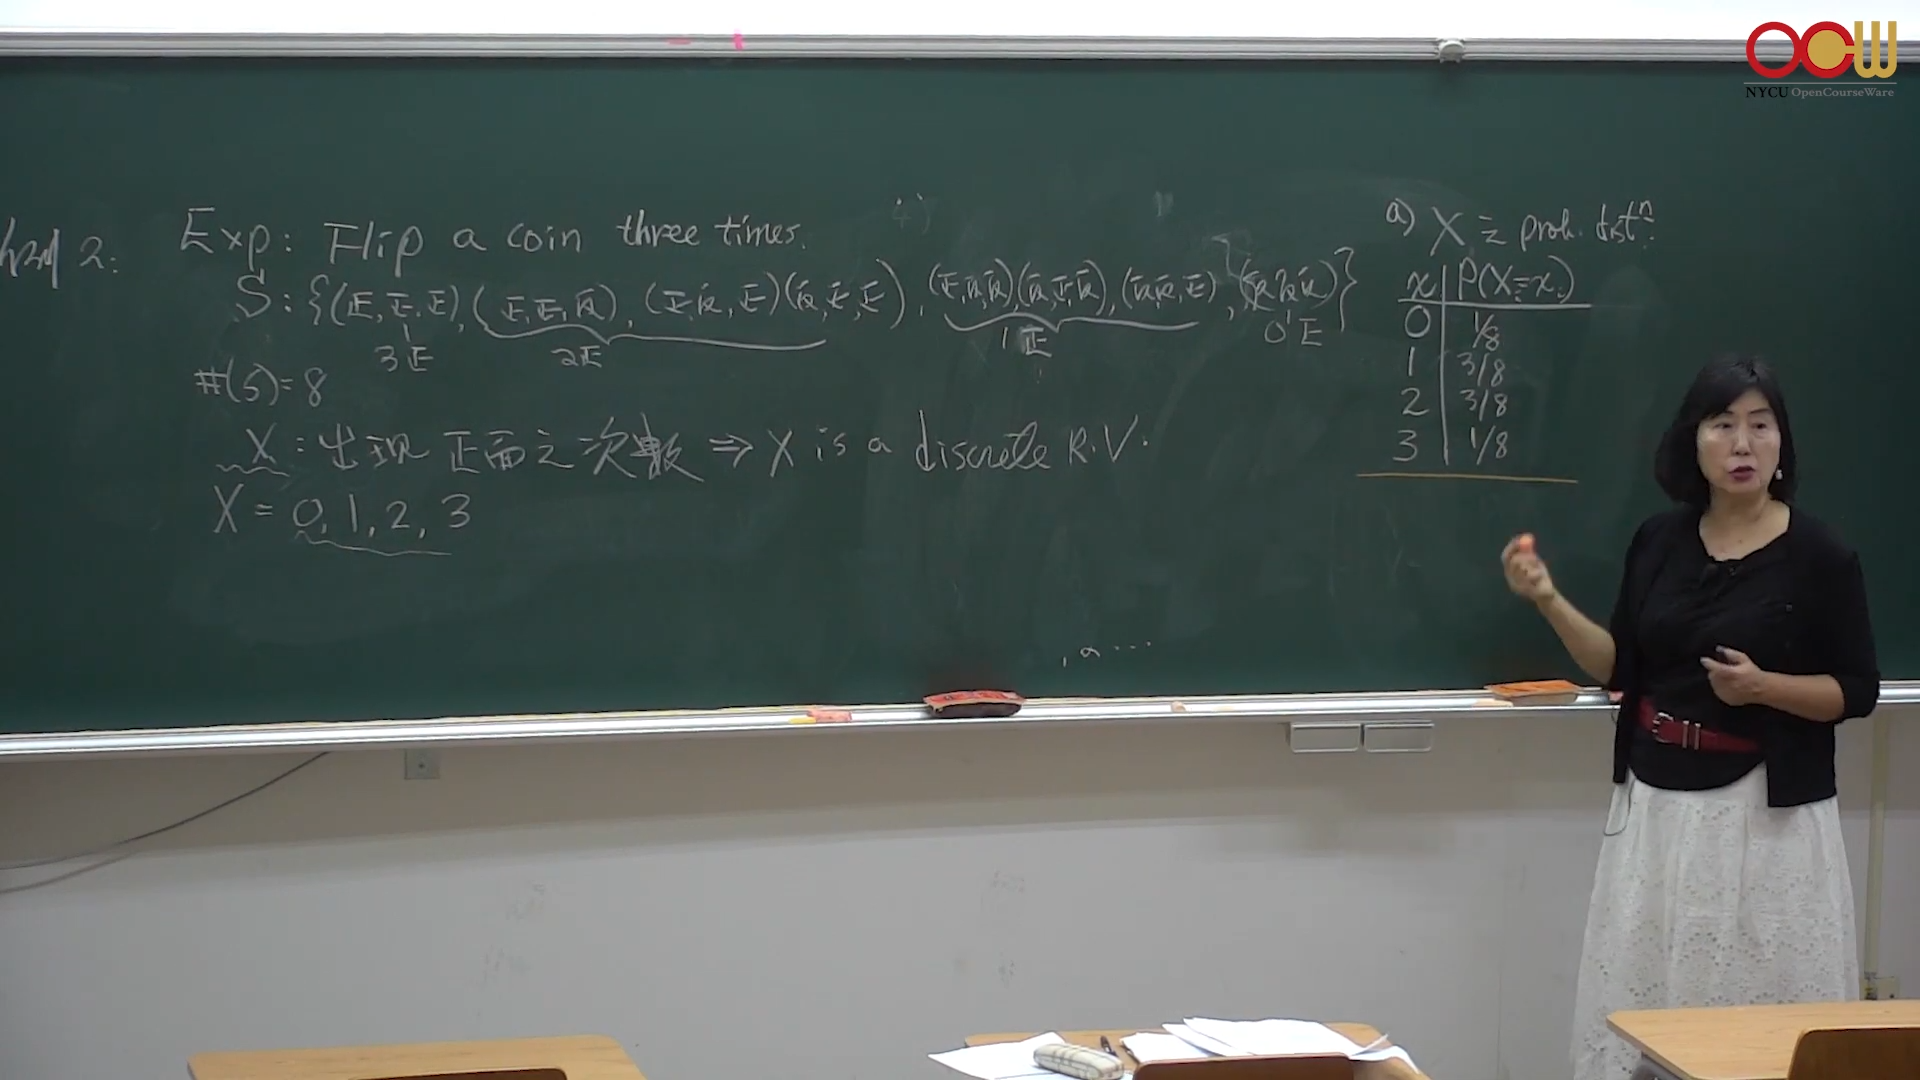 OCW
NYCU OpenCourseWare
2:
Exp: Flip a coin three times.
S: {(正,正,正), (正,正,反), (正,反,正)(反,正,正), (正,反,反)(反,正,反), (反,反,正), (反反反)}
3正 2正 1正 0正
#(S)=8
X: 出現正面之次數 ⇒ X is a discrete R.V.
X = 0, 1, 2, 3
a) X 之 prob. distⁿ:
x P(X=x)
0 1/8
1 3/8
2 3/8
3 1/8